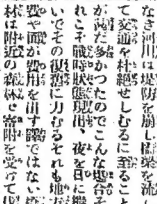 なき河川は堤防を崩し闘梁を流し
て交通を杜絶せしむるに至ること
が尚だ多かつたのでこんな場合そ
れこそ戦時状態現出、夜を日に継
いでその復旧に力むるそれも地方
費や面が費用を出す譯ではない
林は附近の森林を寄附を受けて